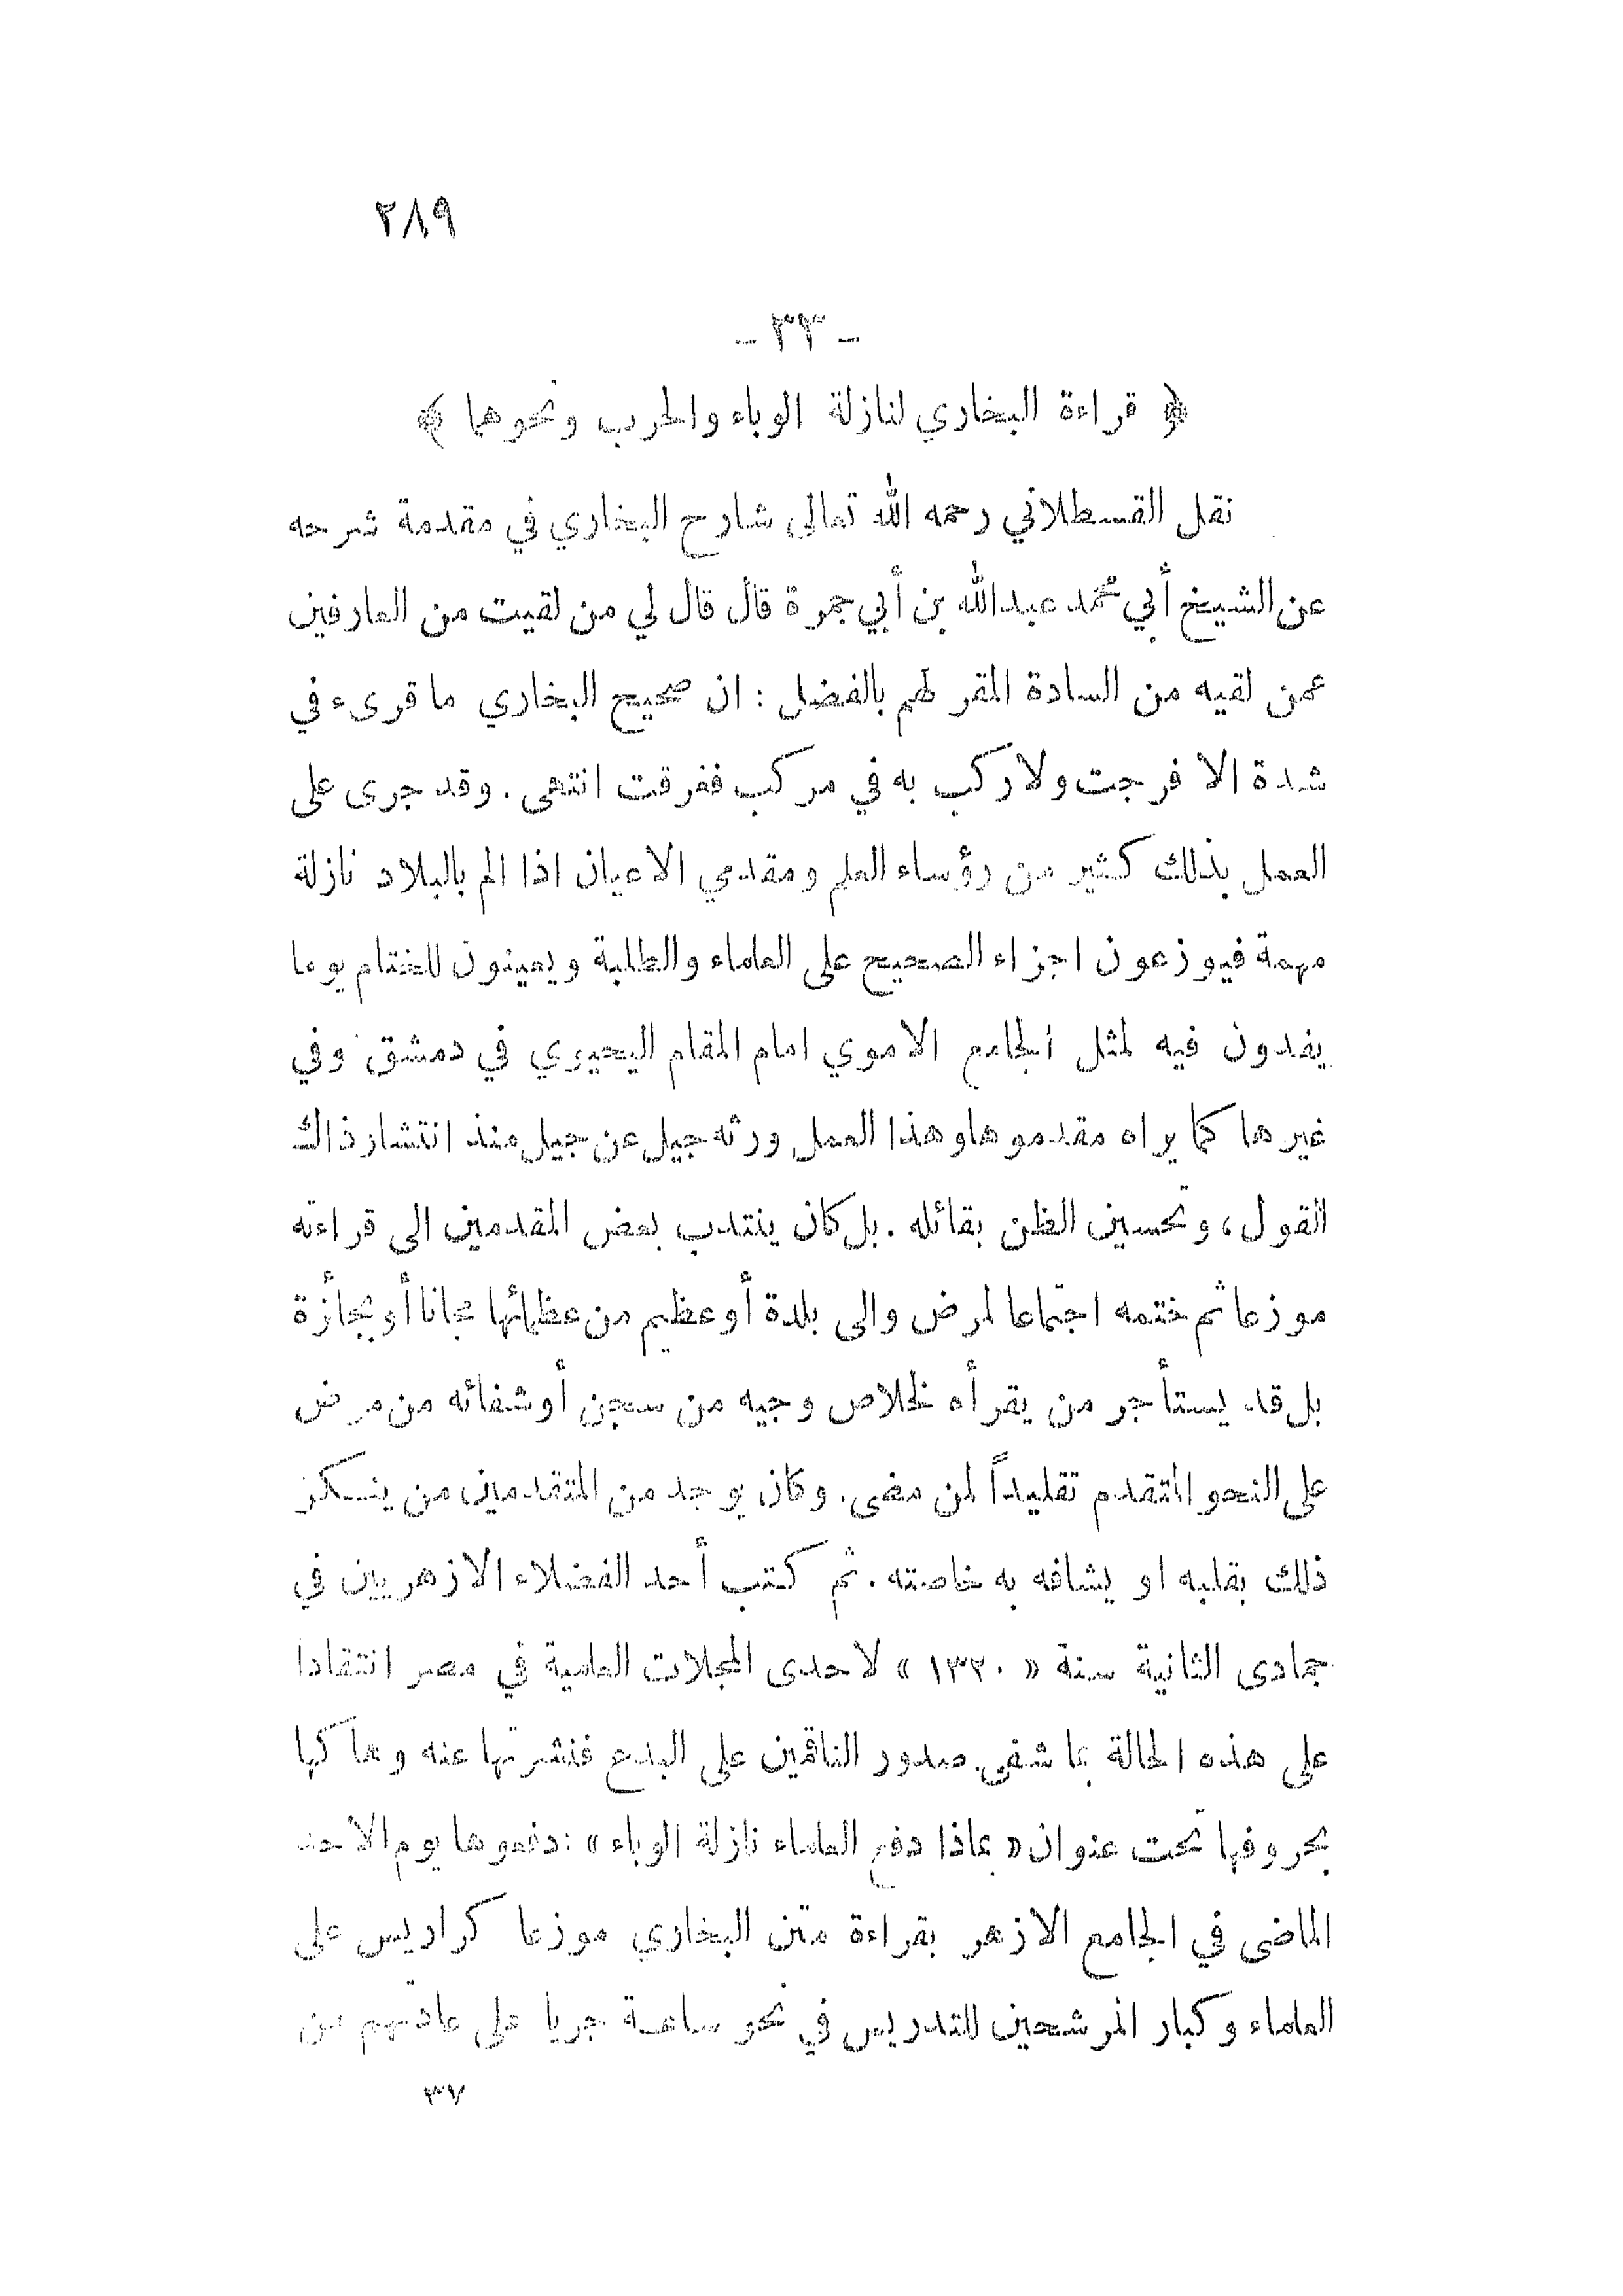 ٢٨٩
- ٣٣ -
﴿ قراءة البخاري لنازلة الوباء والحرب ونحوهما ﴾
نقل القسطلاني رحمه الله تعالى شارح البخاري في مقدمة شرحه
عن الشيخ أبي محمد عبدالله بن أبي جمرة قال قال لي من لقيت من العارفين
عمن لقيه من السادة المقر لهم بالفضل : ان صحيح البخاري ما قرىء في
شدة الا فرجت ولا ركب به في مركب فغرقت انتهى . وقد جرى على
العمل بذلك كثير من رؤساء العلم ومقدمي الاعيان اذا الم بالبلاد نازلة
مهمة فيوزعون اجزاء الصحيح على العلماء والطلبة ويعينون للختام يوما
يفدون فيه لمثل الجامع الاموي امام المقام اليحيوي في دمشق وفي
غيرها كما يراه مقدموها وهذا العمل ورثه جيل عن جيل منذ انتشار ذاك
القول ، وتحسين الظن بقائله . بل كان ينتدب بعض المقدمين الى قراءته
موزعا ثم ختمه اجتماعا لمرض والى بلدة أو عظيم من عظمائها مجانا أو بجائزة
بل قد يستأجر من يقرأه لخلاص وجيه من سجن أو شفائه من مرض
على النحو المتقدم تقليداً لمن مضى . وكان يوجد من المتقدمين من ينكر
ذلك بقلبه او يشافه به خاصته . ثم كتب أحد الفضلاء الازهريين في
جمادى الثانية سنة « ١٣٢٠ » لاحدى المجلات العلمية في مصر انتقادا
على هذه الحالة بما شفى صدور الناقمين على البدع فنشرتها عنه وهاكها
بحروفها تحت عنوان « بماذا دفع العلماء نازلة الوباء » : دفعوها يوم الاحد
الماضى في الجامع الازهر بقراءة متن البخاري موزعا كراريس على
العلماء وكبار المرشحين للتدريس في نحو ساعة جريا على عادتهم من
٣٧